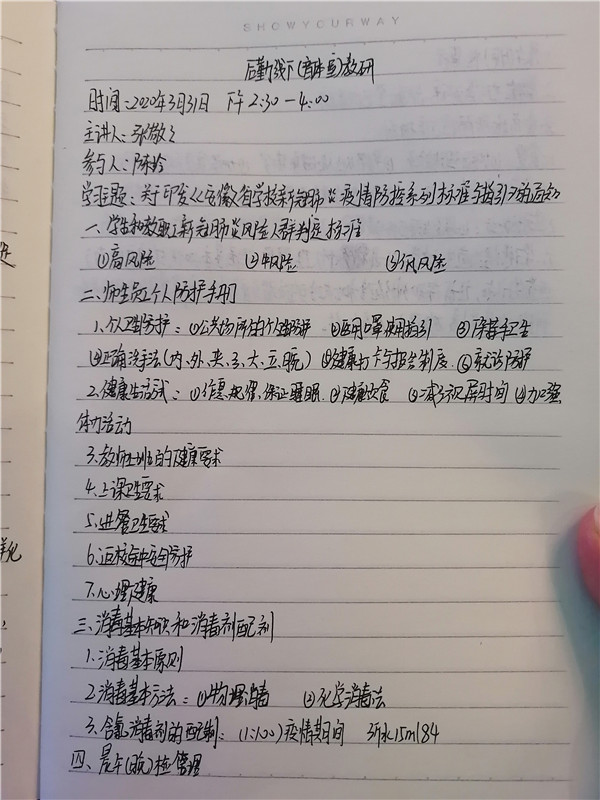 SHOWYOURWAY
后勤线下(育本园)教研
时间:2020年3月31日 下午2:30-4:00
主讲人:张敬
参与人:陈玲
学习主题:关于印发《安徽省学校新冠肺炎疫情防控系列标准与指引》的函
一、学生和教职工新冠肺炎风险人群判定标准
①高风险 ②中风险 ③低风险
二、师生员工个人防护手册
1.个人卫生防护:①公共场所的个人防护 ②医用口罩使用指引 ③保持手卫生
④正确洗手法(内、外、夹、弓、大、立、腕) ⑤健康打卡与报告制度 ⑥就诊防护
2.健康生活方式:①作息规律,保证睡眠 ②健康饮食 ③减少视屏时间 ④加强
体力活动
3.教师上班的健康要求
4.上课卫生要求
5.进餐卫生要求
6.返校途中安全防护
7.心理健康
三、消毒基本知识和消毒剂配制
1.消毒基本原则
2.消毒基本方法:①物理消毒 ②化学消毒法
3.含氯消毒剂的配制:(1:100)疫情期间 水15ml84
四、晨午(晚)检管理